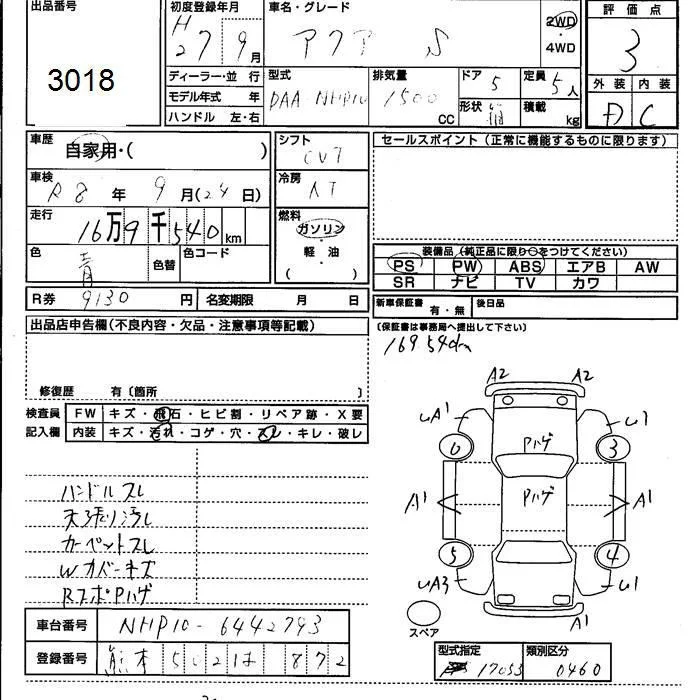 出品番号
3018
初度登録年月
H27 9月
車名・グレード
アクア S
2WD
・
4WD
評価点
3
外装 内装
D C
ディーラー・並行
モデル年式 年
ハンドル 左・右
型式
DAA NHP10
排気量
1500 CC
ドア
5
形状
定員
5人
積載
kg
車歴
自家用・( )
車検
R8年 9月(24日)
走行
16万9千540km
色
青
色替
色コード
R券 9130円 名変期限 月 日
シフト
CVT
冷房
AT
燃料
ガソリン
軽・油
( )
セールスポイント(正常に機能するものに限ります)
装備品(純正品に限り○をつけてください)
PS PW ABS エアB AW
SR ナビ TV カワ
新車保証書 有・無 後日品
(保証書は事務局へ提出して下さい)
169540km
出品店申告欄(不良内容・欠品・注意事項等記載)
修復歴 有〔箇所 〕
検査員 FW キズ・飛石・ヒビ割・リペア跡・X要
記入欄 内装 キズ・汚れ・コゲ・穴・スレ・キレ・破レ
ハンドルスレ
天張り汚レ
カーペットスレ
Wカバーキズ
RスポPハゲ
A2 A2
UA1 U1
Pハゲ
6 3
Pハゲ
A1 A1
5 4
UA3 U1
A1
スペア
車台番号 NHP10-6442793
登録番号 熊本 502 は 872
型式指定 類別区分
17053 0460